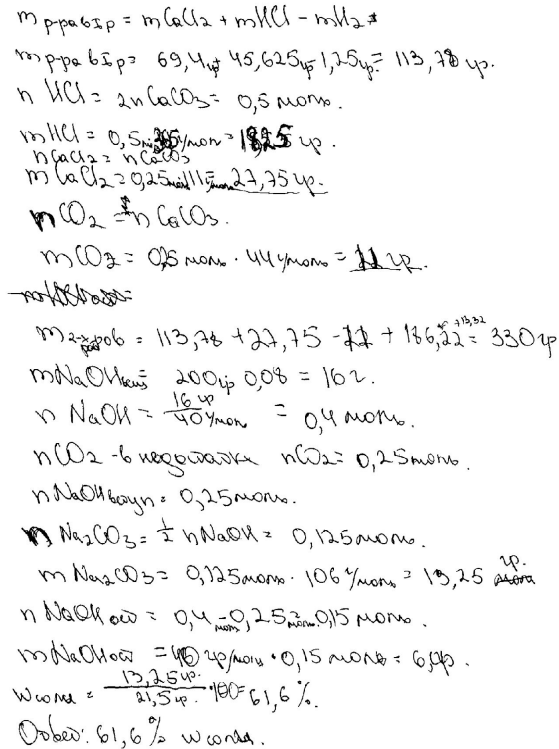 m р-ра в I р = mCaCl2 + mHCl - mH2↑
m р-ра в I р = 69,4 гр + 45,625 гр - 1,25 гр. = 113,78 гр.
n HCl = 2nCaCO3 = 0,5 моль.
mHCl = 0,5 моль г/моль = гр.
nCaCl2 = nCaCO3
mCaCl2 = 0,25 моль 111 г/моль = 27,75 гр.
nCO2 = nCaCO3.
mCO2 = 0,25 моль · 44 г/моль = 11 гр.
m 2-х = 113,78 + 27,75 - 11 + 186,22 + 13,32 = 330 гр
mNaOH = 200 гр 0,08 = 16 г.
n NaOH = 16 гр / 40 г/моль = 0,4 моль.
nCO2 - в недостатке nCO2 = 0,25 моль.
nNaOH вступ = 0,25 моль.
n Na2CO3 = 1/2 nNaOH = 0,125 моль.
m Na2CO3 = 0,125 моль · 106 г/моль = 13,25 гр.
n NaOH ост = 0,4 моль - 0,25 моль = 0,15 моль.
mNaOH ост = 40 гр/моль · 0,15 моль = 6 гр.
W соли = 13,25 гр. / 21,5 гр. · 100 = 61,6 %.
Ответ: 61,6 % W соли.